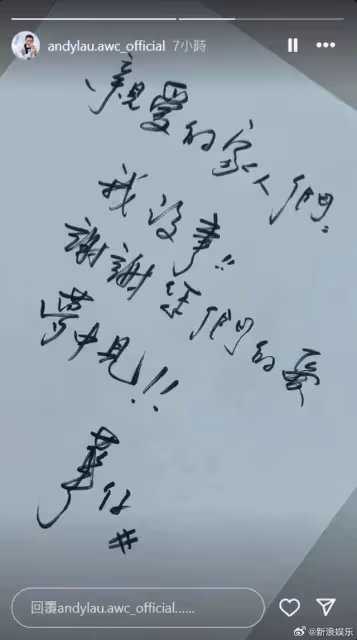 andylau.awc_official 7小時
親愛的家人們:
我沒事!!
謝謝你們的愛
夢中見!!!
華仔
#
回覆andylau.awc_official......
@新浪娱乐